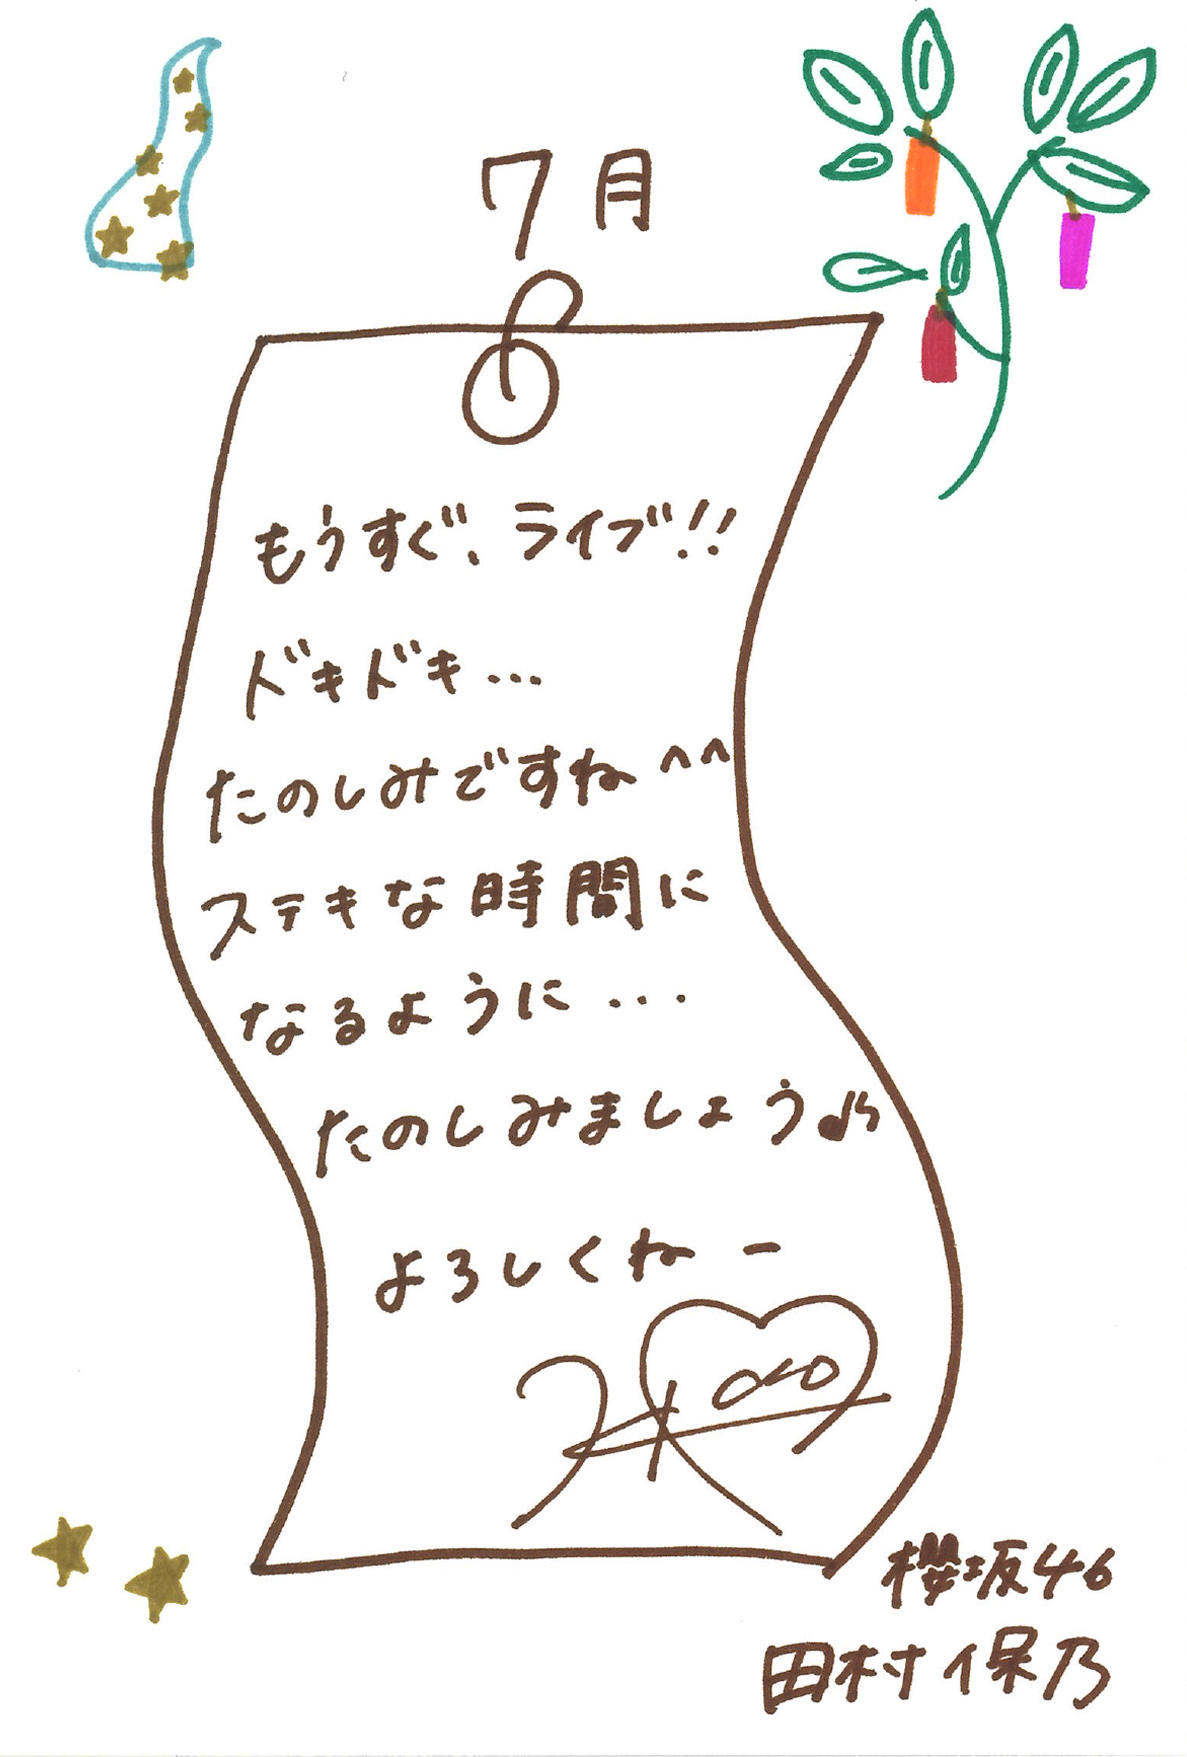 7月
もうすぐ、ライブ!!
ドキドキ...
たのしみですね^^
ステキな時間に
なるように...
たのしみましょう♫
よろしくねー
櫻坂46
田村保乃